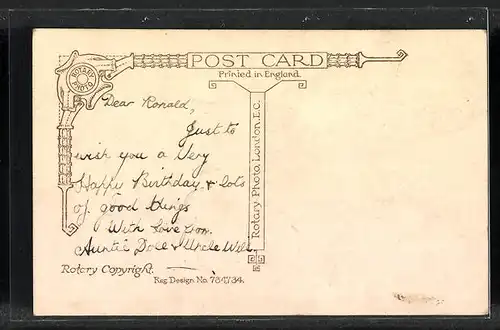 POST CARD
Printed in England.
ROTARY PHOTO
Dear Ronald,
Just to
wish you a Very
Happy Birthday & lots
of good things
With love from
Auntie Doll & Uncle Will.
Rotary Photo, London, E.C.
Rotary Copyright.
Reg. Design No.